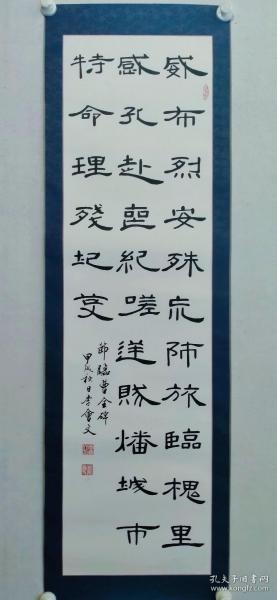 威布烈安殊巟師旅臨槐里
感孔赴喪紀嗟逆賊燔城市
特命理殘圮芟
節臨曹全碑
甲戌秋日李會文
孔夫子旧书网